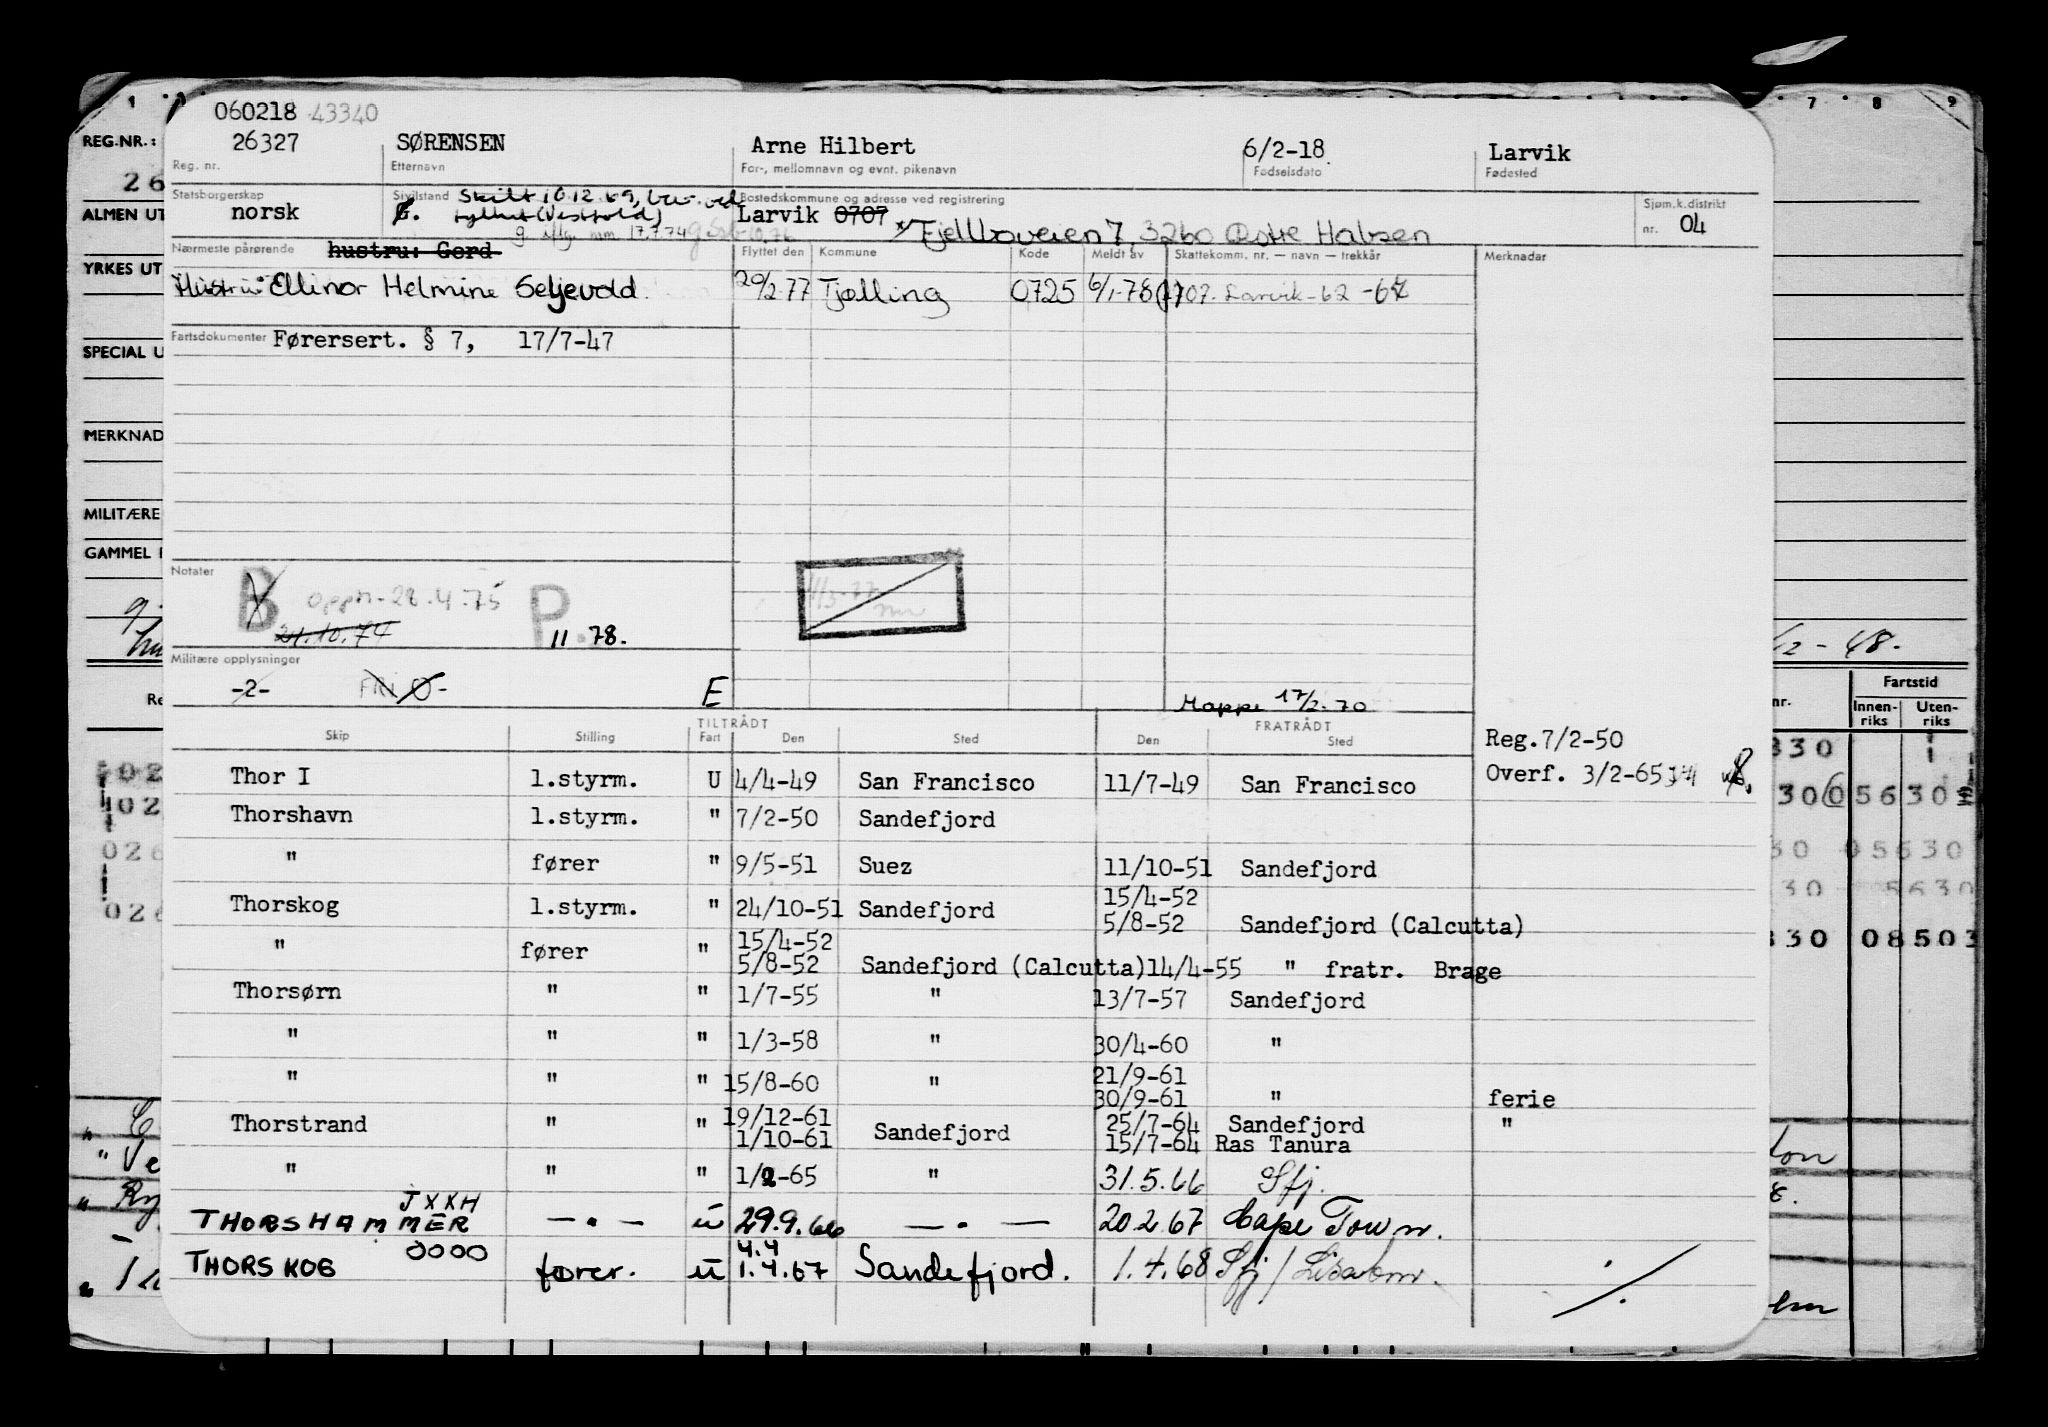 060218 43340
26327 SØRENSEN Arne Hilbert 6/2-18 Larvik
Reg. nr. Etternavn For-, mellomnavn og evnt. pikenavn Fødselsdato Fødested
Statsborgerskap Sivilstand Skilt 10.12.69, bev. ved Bostedskommune og adresse ved registrering Sjøm.k.distrikt
norsk fylket (Vestfold) Larvik 0707 Fjellboveien 7, 3260 Østre Halsen nr. 04
17.7.74
Nærmeste pårørende hustru: Gerd Flyttet den Kommune Kode Meldt av Skattekomm. nr. — navn — trekkår Merknader
Hustru: Ellinor Helmine Seljevold 20/2.77 Tjølling 0725 6/1-78 0707. Larvik-62
Fartsdokumenter Førersert. § 7, 17/7-47
Notater B oppr.-28.4.75 P.
21.10.74 11.78.
Militære opplysninger
-2- FRI E
Mappe 17/2.70
Skip Stilling TILTRÅDT Fart Den Sted FRATRÅDT Den Sted
Reg.7/2-50
Overf. 3/2-65
Thor I 1.styrm. U 4/4-49 San Francisco 11/7-49 San Francisco
Thorshavn 1.styrm. " 7/2-50 Sandefjord
" fører " 9/5-51 Suez 11/10-51 Sandefjord
15/4-52
Thorskog 1.styrm. " 24/10-51 Sandefjord 5/8-52 Sandefjord (Calcutta)
15/4-52
" fører " 5/8-52 Sandefjord (Calcutta) 14/4-55 " fratr. Brage
Thorsørn " " 1/7-55 " 13/7-57 Sandefjord
" " " 1/3-58 " 30/4-60 "
21/9-61
" " " 15/8-60 " 30/9-61 " ferie
19/12-61 25/7-64 Sandefjord "
Thorstrand " " 1/10-61 Sandefjord 15/7-64 Ras Tanura
" " " 1/2-65 " 31.5.66 Sfj.
JXXH
THORSHAMMER —.— u 29.9.66 —.— 20.2.67 Cape Town.
OOOO 4.4
THORSKOG fører. u 1.4.67 Sandefjord. 1.4.68 Sfj/
REG.NR.:
26
ALMEN UT
YRKES UT
SPECIAL U
MERKNAD
MILITÆRE
GAMMEL
1 7 8 9
/2-48.
nr. Fartstid
Innenriks Utenriks
330
30 0 5630
30 05630
30 5630
330 08503
026